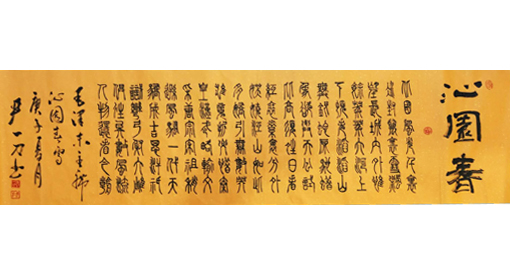 沁園春
北國風光千里
冰封萬里雪飄
望長城内外惟
餘莽莽大河上
下頓失滔滔山
舞銀蛇原馳蠟
象欲與天公試
比高須晴日看
紅裝素裹分外
妖嬈江山如此
多嬌引無數英
雄競折腰惜秦
皇漢武略輸文
采唐宗宋祖稍
遜風騷一代天
驕成吉思汗祇
識彎弓射大雕
俱往矣數風流
人物還看今朝
毛澤東主席
沁園春雪
庚子夏月
尹一刀書